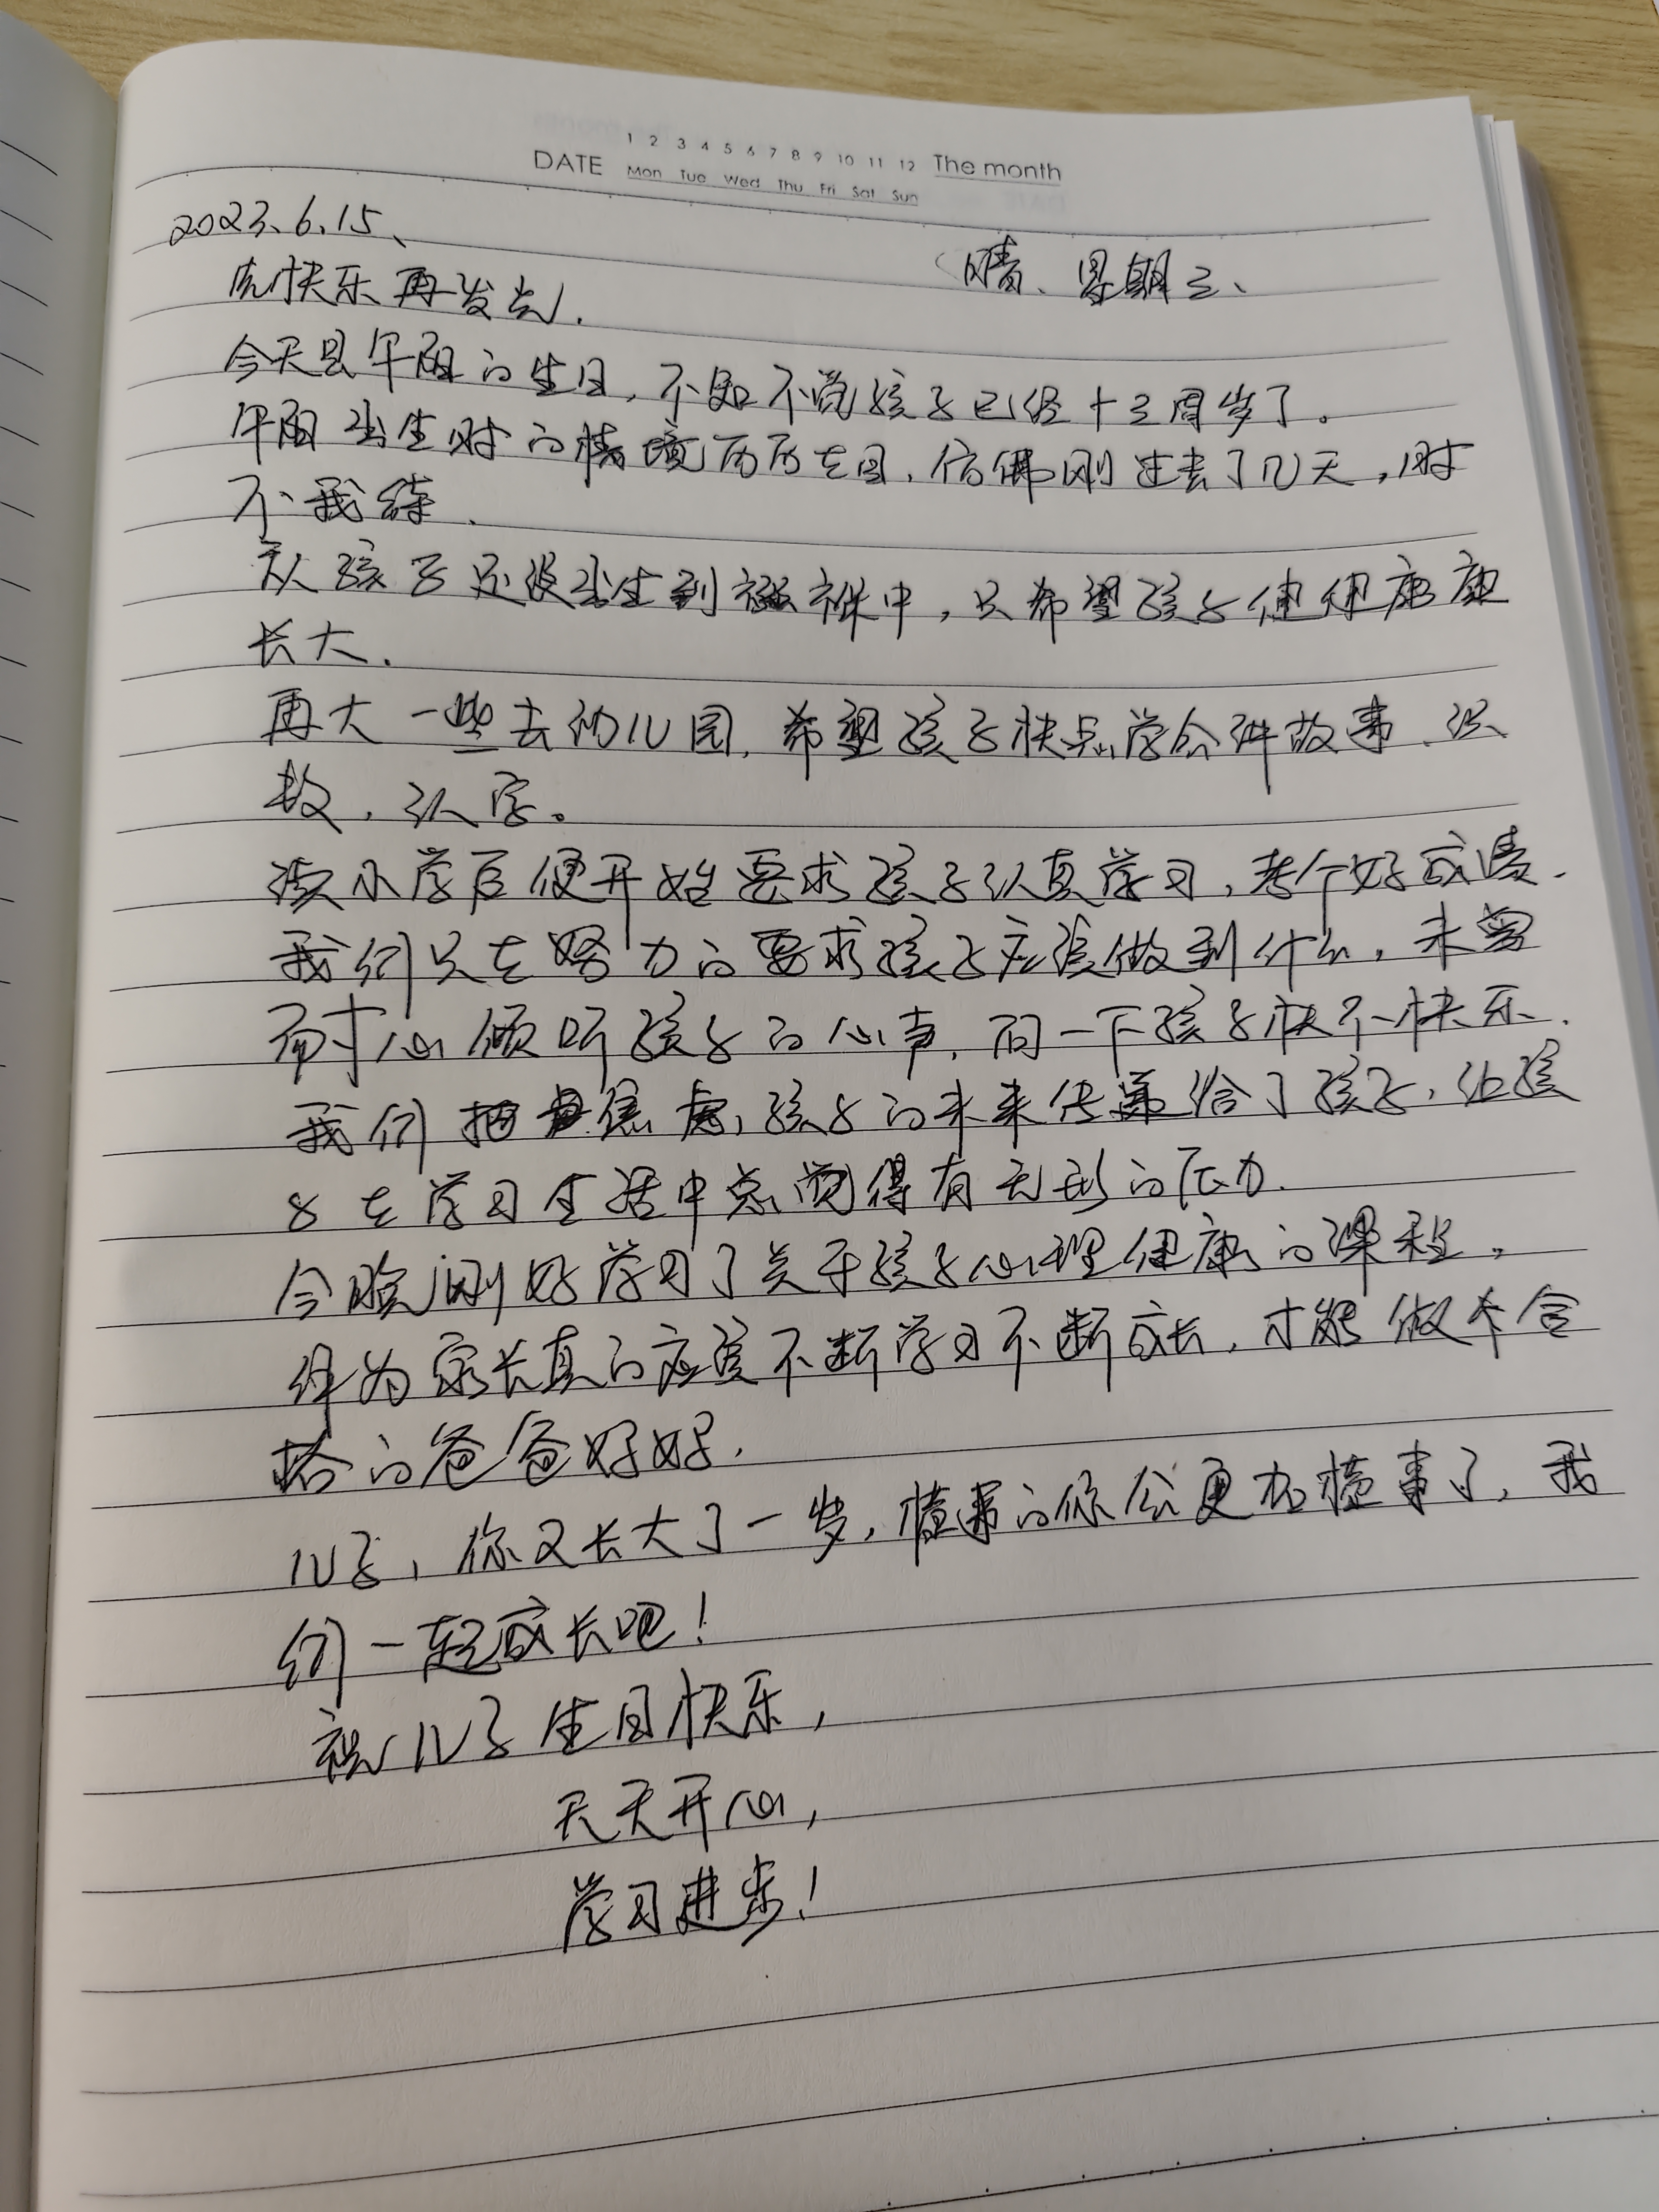 1 2 3 4 5 6 7 8 9 10 11 12 The month
DATE Mon Tue Wed Thu Fri Sat Sun
2023、6、15、
晴、星期三、
先快乐再发光.
今天是午阳的生日,不知不觉孩子已经十三周岁了。
午阳出生时的情境历历在目,仿佛刚过去了几天,时
不我待.
从孩子还没出生到襁褓中,只希望孩子健健康康
长大.
再大一些去幼儿园,希望孩子快点学会讲故事、识
数,认字。
读小学后便开始要求孩子认真学习,考个好成绩.
我们只在努力的要求孩子应该做到什么,未曾
耐心倾听孩子的心声,问一下孩子快不快乐.
我们把焦虑,孩子的未来传递给了孩子,让孩
子在学习生活中总觉得有无形的压力.
今晚刚好学习了关于孩子心理健康的课程,
作为家长真的应该不断学习不断成长,才能做个合
格的爸爸妈妈.
儿子,你又长大了一岁,懂事的你会更加懂事了,我
们一起成长吧!
祝儿子生日快乐,
天天开心,
学习进步!